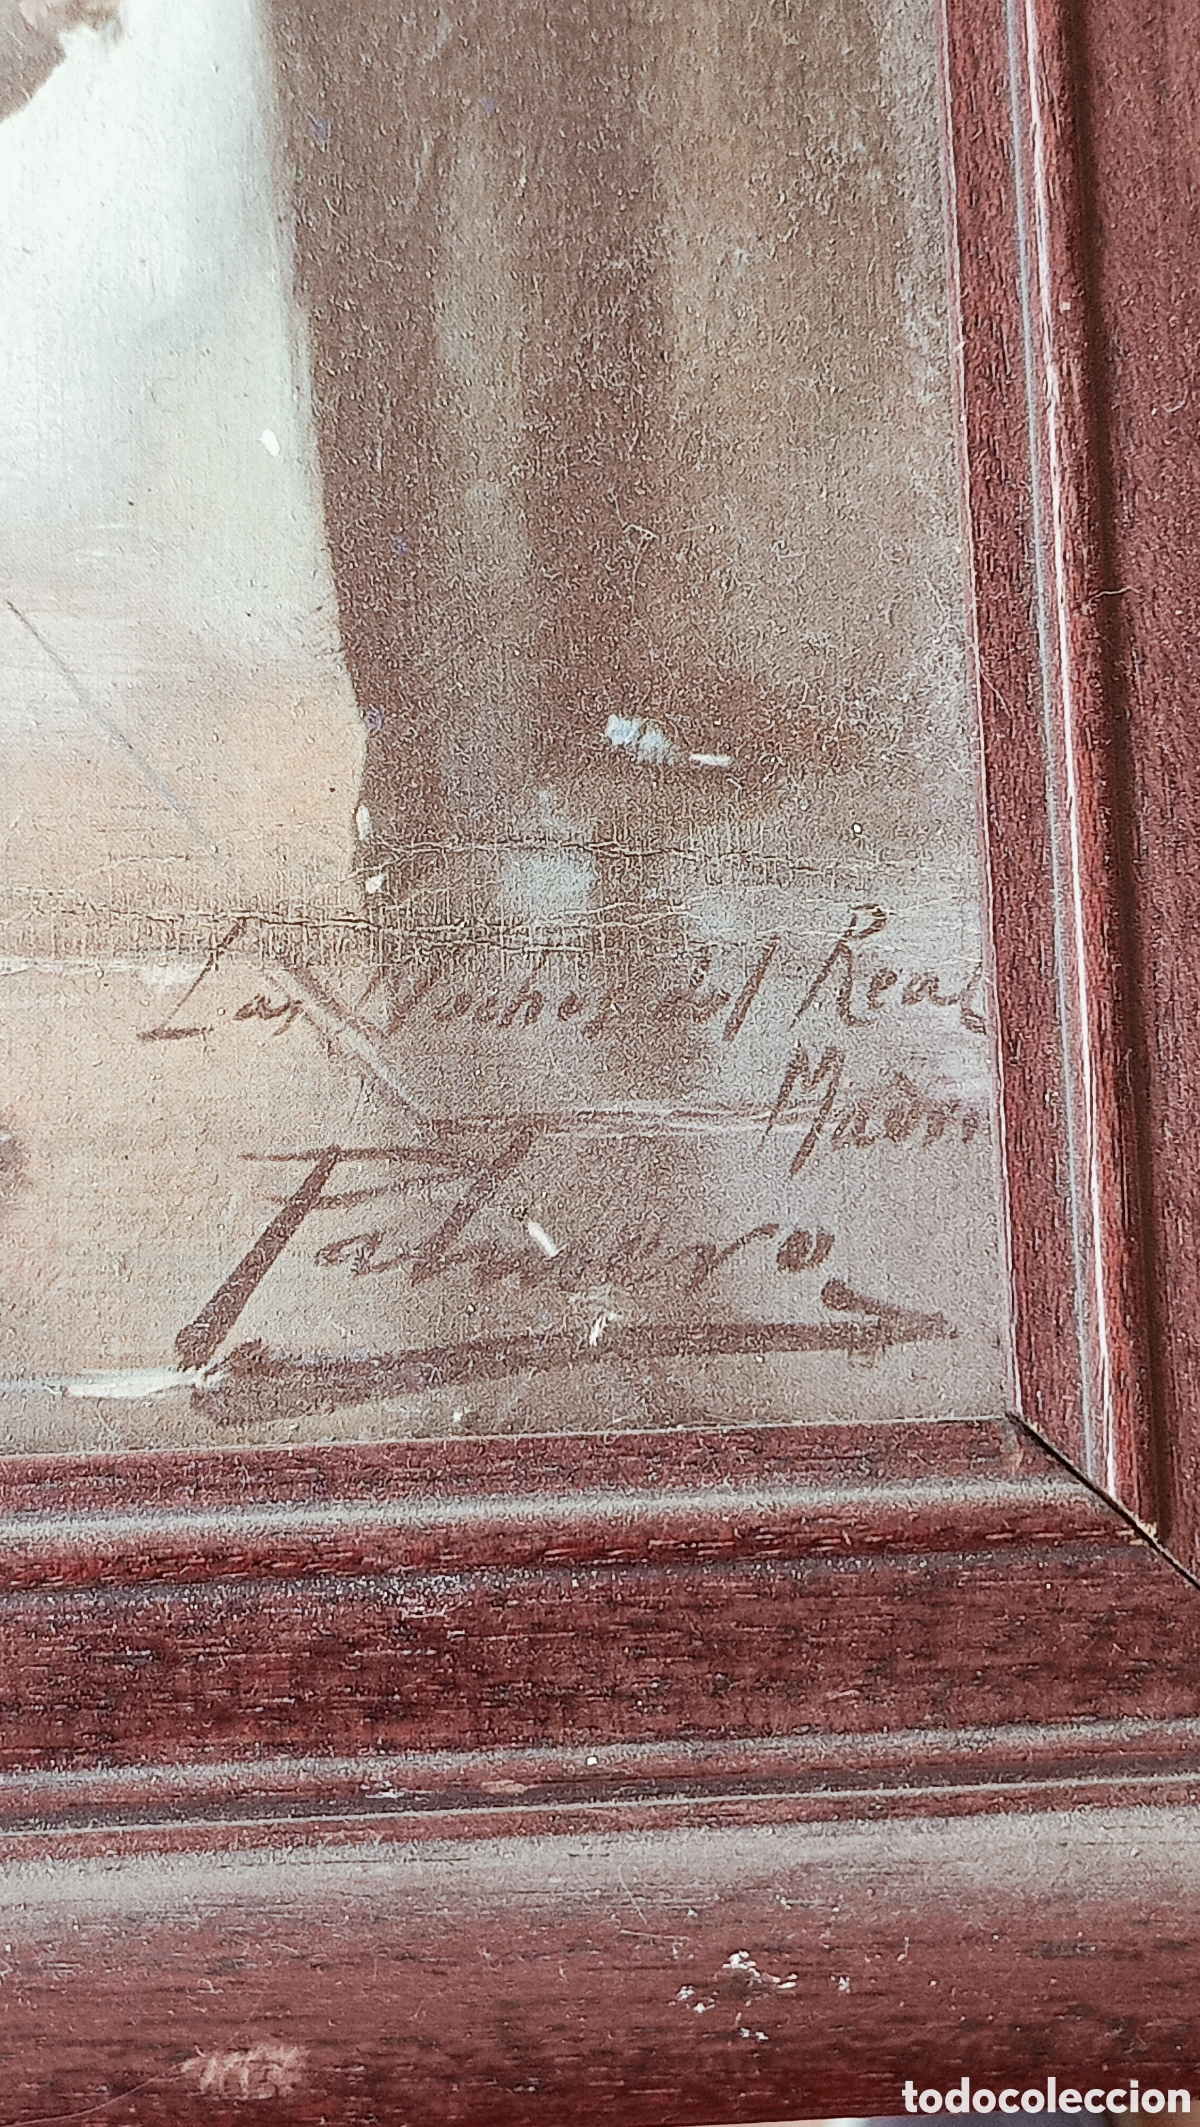 Las Noches del Real
Madrid
Tabuero
todocoleccion